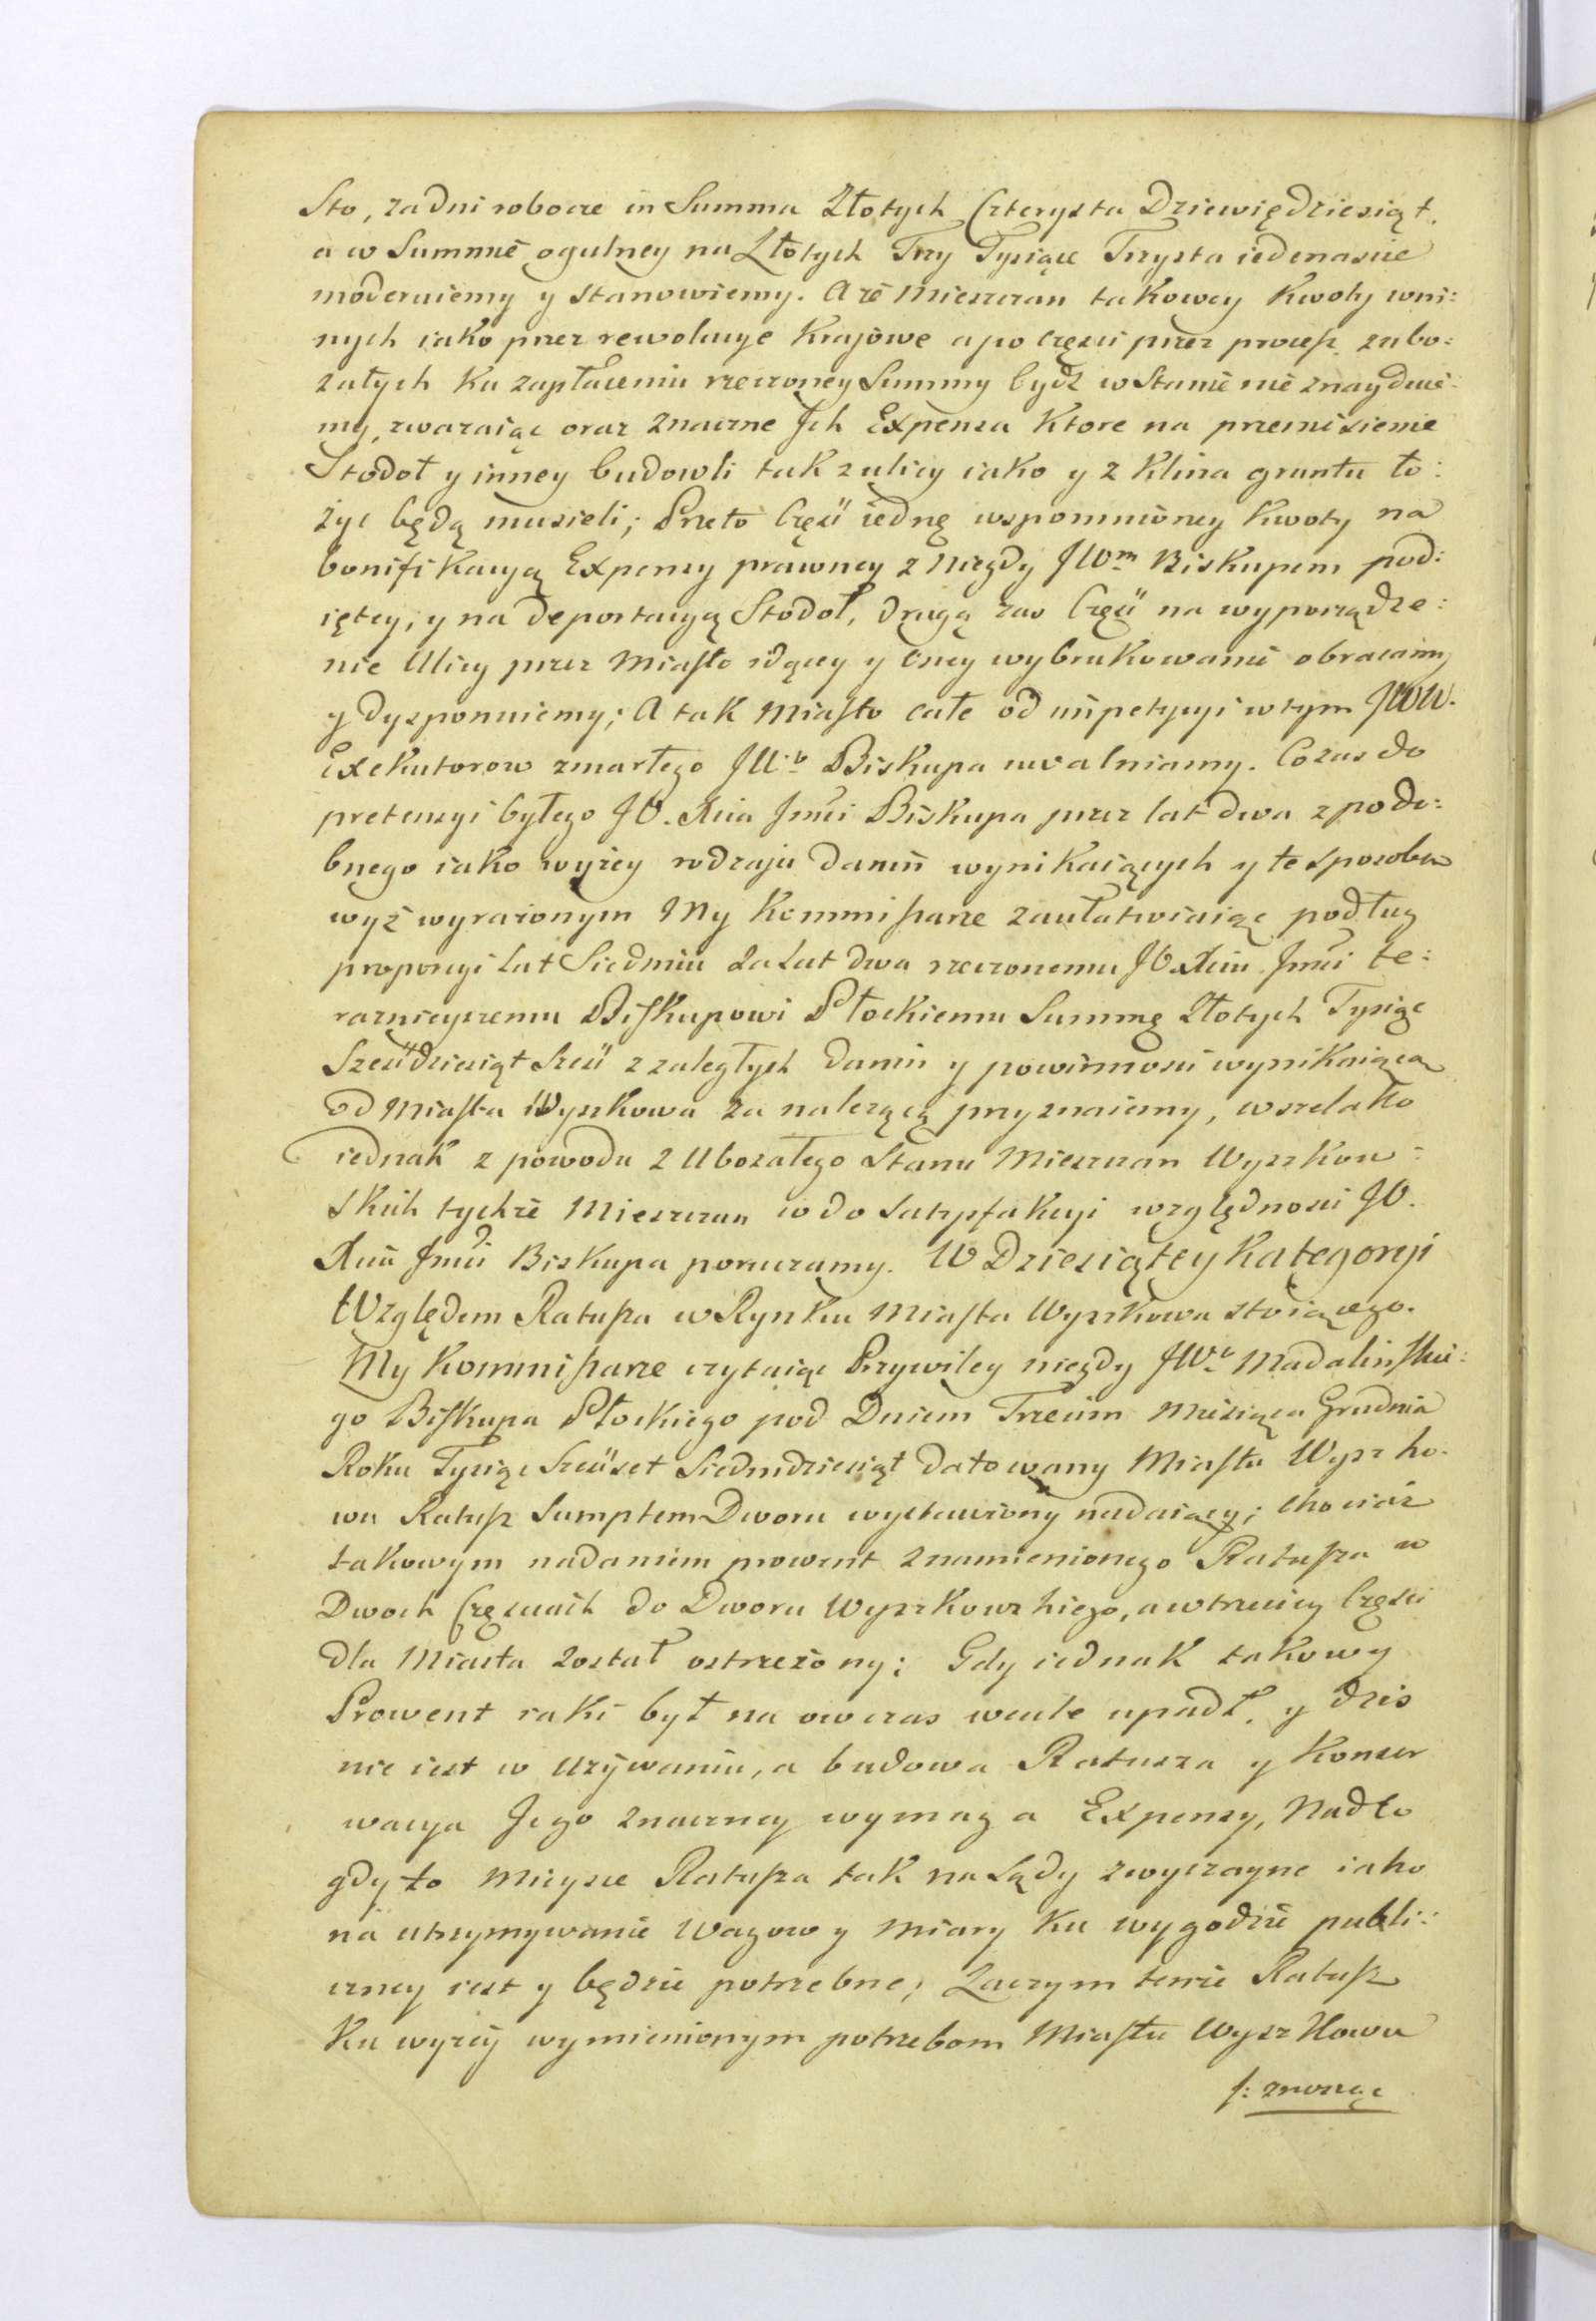 Sto, za dni robocze in Summa Złotych Czterysta Dziewiędziesiąt.
a w Summie ogulney na Złotych Trzy Tysiące Trzysta iedenascie
moderuiemy y stanowiemy. A że Mieszczan takowey Kwoty wni:
nych iako przez rewolucye Krajowe a po części przez process zubo:
żałych Ku zapłaceniu rzeczoney Summy bydź w Stanie nie znayduie:
my, zwazaiąc oraz znaczne Jch Expensa Ktore na przeniesienie
Stodoł y inney budowli tak z ulicy iako y z Klina gruntu ło:
życ będą musieli; Przeto Częić iednę wspomnioney Kwoty na
bonifikacyą Expensy prawney z Niegdy JWm Biskupem pod:
iętey, y na deportacyą Stodoł, drugą zas Częić na wyporządze:
nie Ulicy przez Miasto idącey y oney wybrukowanie obracamy
y dysponuiemy; A tak Miasto całe od impetycyi w tym JWW.
Exekutorow zmarłego JWo Biskupa uwalniamy. Co zas do
pretensyi byłego JO. Xcia Jmci Biskupa przez lat dwa z podo:
bnego iako wyżey rodzaju danin wynikaiących y te sposobem
wyż wyrażonym My Kommissarze zaułatwiaiąc podług
proporcyi Lat Siedmiu za Lat dwa rzeczonemu JO. Xciu Jmci te:
raznieyszemu Biskupowi Płockiemu Summę Złotych Tysiąc
Sześćdziesiąt Sześć z zaległych danin y powinnosci wynikaiącą
od Miasta Wyszkowa za należącą przyznaiemy, wszelako
iednak z powodu zubożałego Stanu Mieszczan Wyszkow:
skich tychże Mieszczan w do Satysfakcyi względnosci JO.
Xcia Jmci Biskupa poruczamy. W Dziesiątey Kategoryi
Względem Ratusza w Rynku Miasta Wyszkowa stoiącego.
My Kommissarze czytaiąc Przywiley niegdy JWo Madalinskie:
go Biskupa Płockiego pod Dniem Trzecim Miesiąca Grudnia
Roku Tysiąc Sześćset Siedmdziesiąt datowany Miastu Wyszko:
wu Ratusz Sumptem Dworu wystawiony nadaiący; chociaż
takowym nadaniem prowent znamienionego Ratusza w
Dwoch Częsciach do Dworu Wyszkowskiego, a w trzeciey Częsci
dla Miasta został ostrzeżony; Gdy iednak takowy
Prowent iaki był na owczas wcale upadł, y dzis
nie iest w używaniu, a budowa Ratusza y Konser
wacya Jego znaczney wymaga Expensy, Nadto
gdy to Mieysce Ratusza tak na Sądy zwyczayne iako
na utrzymywanie Wagow y Miary Ku wygodzie publi:
czney iest y będzie potrzebne; Zaczym tenże Ratusz
Ku wyżey wymienionym potrzebom Miastu Wyszkowu
/: znosząc